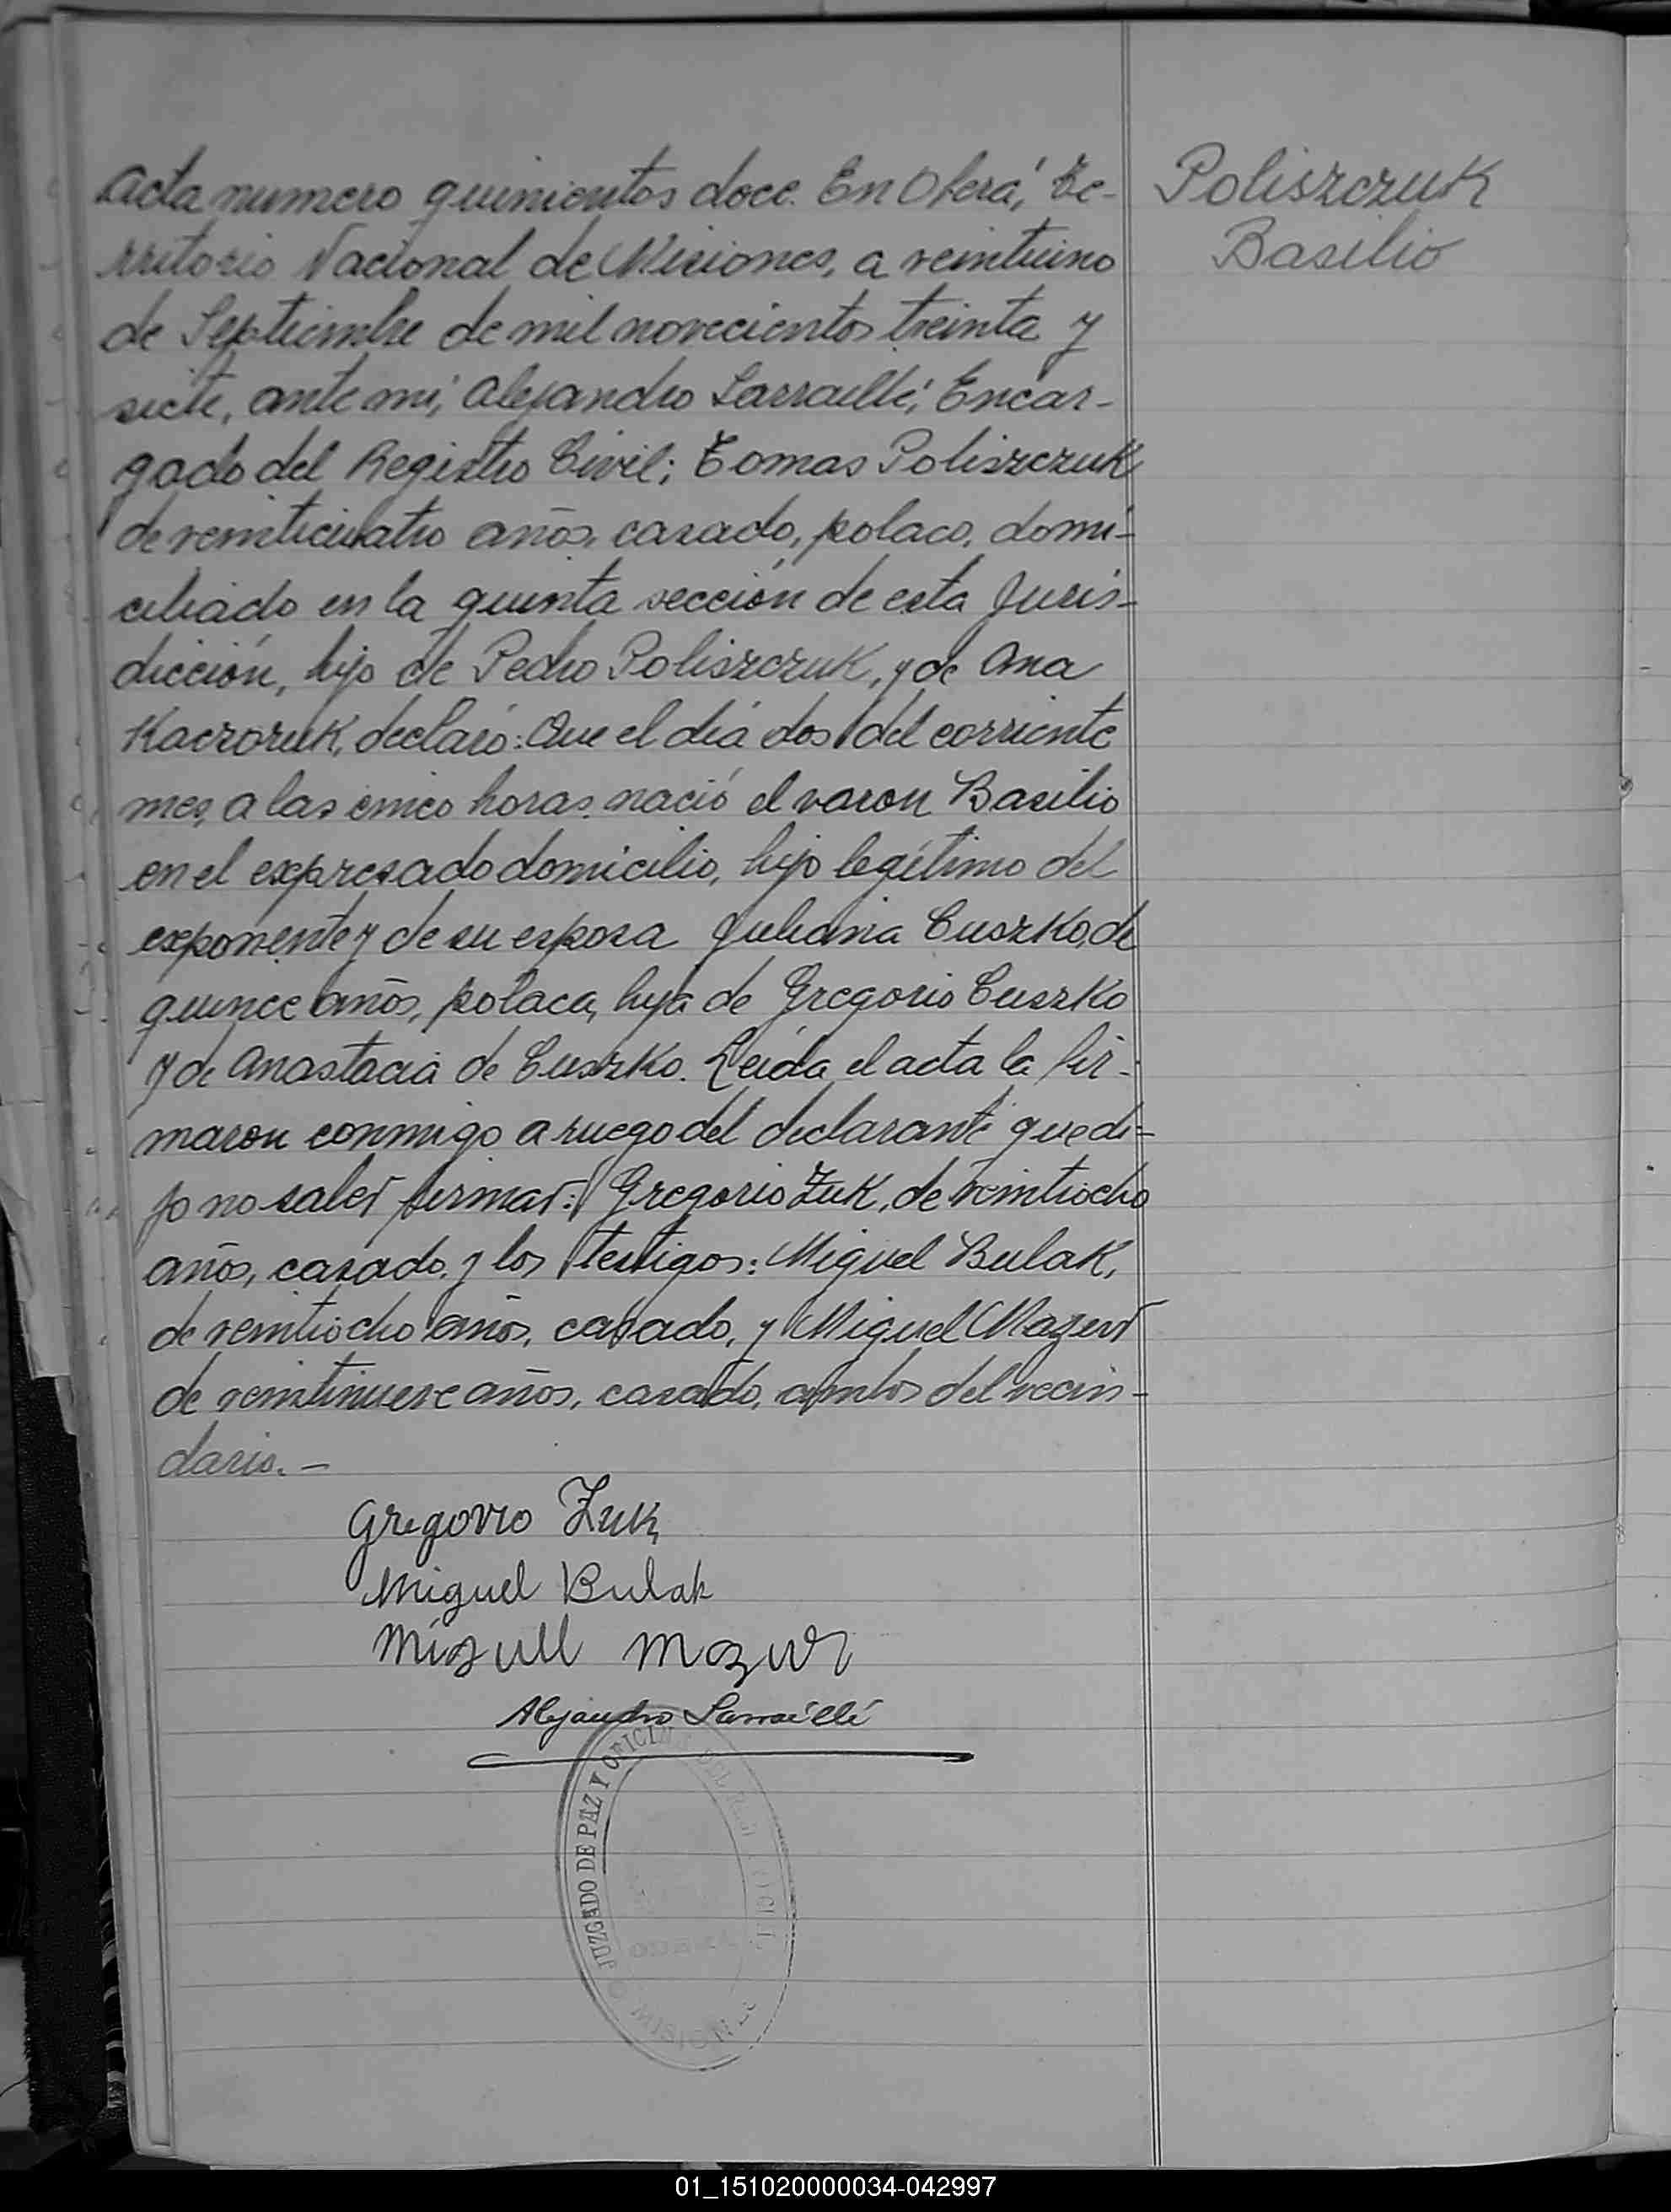 Acta numero quinientos doce. En Oberá, Te-
rritorio Nacional de Misiones, a veintiuno
de Septiembre de mil novecientos treinta y
siete, ante mi, Alejandro Larraillé, Encar-
gado del Registro Civil; Tomas Poliszczuk
de veinticuatro años, casado, polaco, domi-
ciliado en la quinta sección de esta Juris-
dicción, hijo de Pedro Poliszczuk, y de Ana
declaró: Que el día dos del corriente
mes, a las cinco horas, nació el varon Basilio
en el expresado domicilio, hijo legítimo del
exponente y de su esposa Juliana Cuszko, de
quince años, polaca, hija de Gregorio Cuszko
y de Anastacia de Cuszko. Leida el acta la fir-
maron conmigo a ruego del declarante que di-
jo no saber firmar: Gregorio Zuk, de veintiocho
años, casado, y los testigos: Miguel Bulak,
de veintiocho años, casado, y Miguel Mazur
de veintinueve años, casado, ambos del vecin-
dario.-
Poliszczuk
Basilio
Gregorio Zuk
Miguel Bulak
Miguel Mazur
Alejandro Larraillé
JUZGADO DE PAZ Y OFICINA DEL CIVIL
MISIONES
01_151020000034-042997